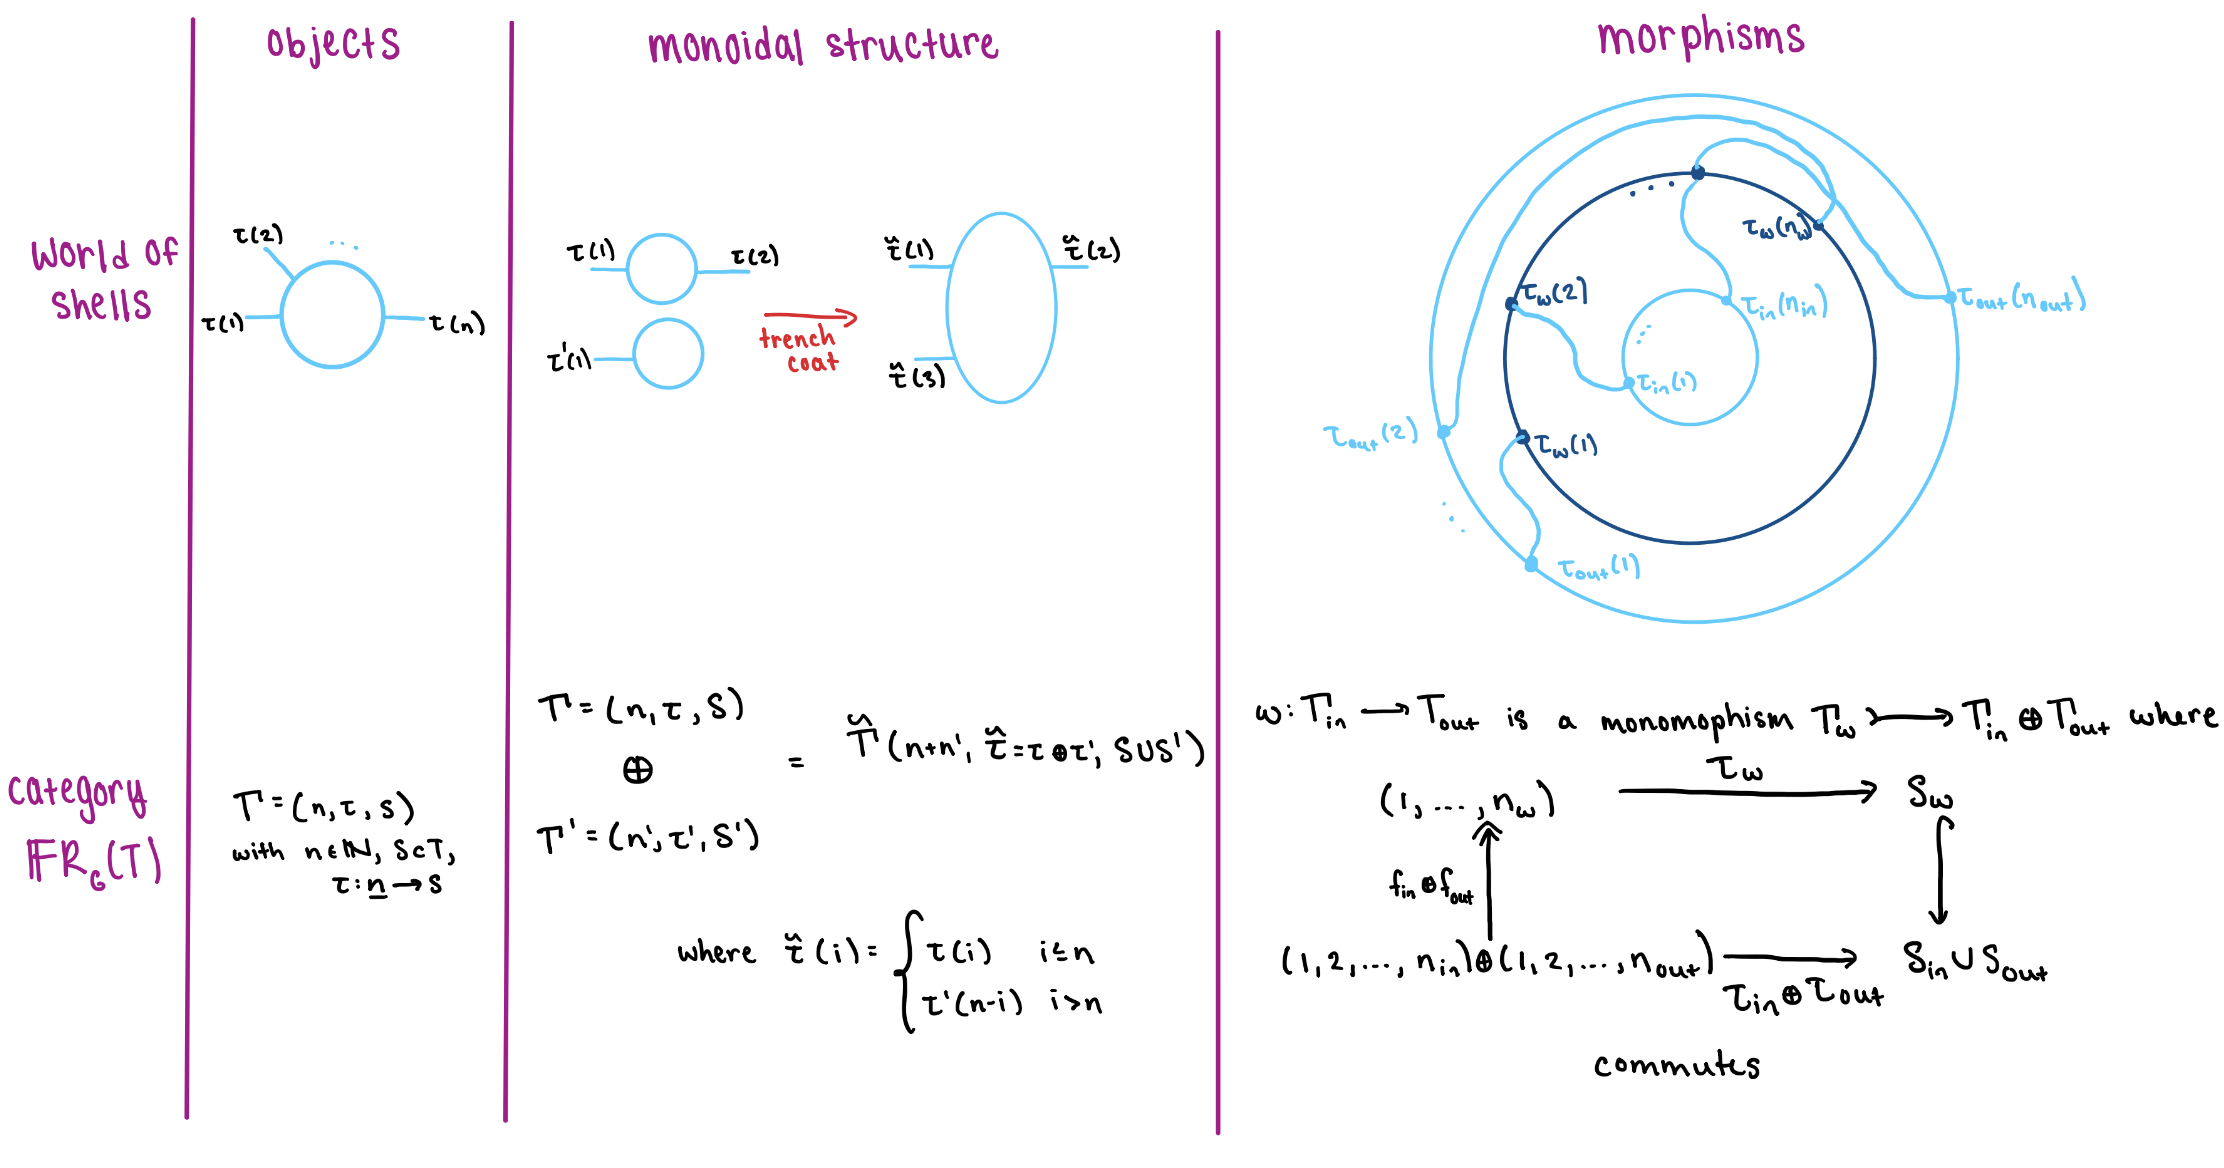 objects
monoidal structure
morphisms
world of
shells
τ(2)
...
τ(1)
τ(n)
τ(1)
τ(2)
τ'(1)
trench
coat
τ̆(1)
τ̆(2)
τ̆(3)
...
τ_w(n_w)
τ_w(2)
τ_in(n_in)
τ_out(n_out)
...
τ_in(1)
τ_out(2)
τ_w(1)
...
τ_out(1)
category
𝔽R_G(T)
Γ = (n, τ, S)
with n∈ℕ, S⊂T,
τ: n → S
Γ = (n, τ, S)
⊕
= Γ̆(n+n', τ̆=τ⊕τ', S∪S')
Γ' = (n', τ', S')
where τ̆(i) = { τ(i) i≤n
τ'(n-i) i>n
ω: Γ_in → Γ_out is a monomophism Γ_w ↣ Γ_in ⊕ Γ_out where
τ_w
(1, ..., n_w)
S_w
f_in⊕f_out
(1, 2, ..., n_in)⊕(1, 2, ..., n_out)
τ_in⊕τ_out
S_in∪S_out
commutes